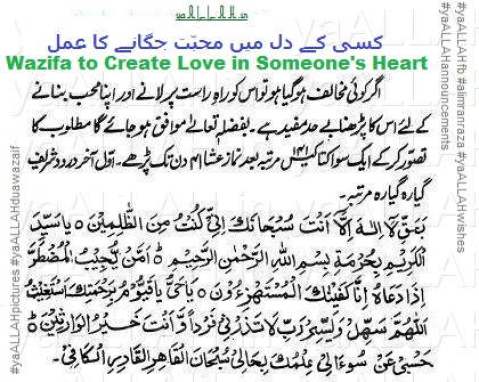 yaALLAH.in
کسی کے دل میں محبّت جگانے کا عمل
Wazifa to Create Love in Someone's Heart
اگر کوئی مخالف ہو گیا ہو تو اس کو راہِ راست پر لانے اور اپنا محب بنانے
کے لئے اس کا پڑھنا بے حد مفید ہے۔ بفضلہٖ تعالےٰ موافق ہو جائے گا مطلوب کا
تصوّر کر کے ایک سو اکتالیس ۱۴۱ مرتبہ بعد نماز عشا ۴۱ دن تک پڑھے۔ اوّل آخر درود شریف
گیارہ گیارہ مرتبہ۔
بِحَقِّ لَا اِلٰهَ اِلَّا اَنْتَ سُبْحَانَكَ اِنِّیْ كُنْتُ مِنَ الظّٰلِمِیْنَ ○ یَا سَیِّدَ
الْكَرِیْمِ بِحُرْمَةِ بِسْمِ اللهِ الرَّحْمٰنِ الرَّحِیْمِ ؕ اَمَّنْ یُّجِیْبُ الْمُضْطَرَّ
اِذَا دَعَاهُ اِنَّا كَفَیْنٰكَ الْمُسْتَهْزِءُوْنَ ○ یَا حَیُّ یَا قَیُّوْمُ بِرَحْمَتِكَ اَسْتَغِیْثُ
اَللّٰهُمَّ سَهِّلْ وَیَسِّرْ رَبِّ لَا تَذَرْنِیْ فَرْدًا وَّ اَنْتَ خَیْرُ الْوَارِثِیْنَ ؕ
حَسْبِیْ عَنْ سُوَءَالِیْ عِلْمُكَ بِحَالِیْ سُبْحَانَ الْقَاهِرِ الْقَادِرِ الْكَافِیْ۔
#yaALLAHpictures #yaALLAHduawazaif
#yaALLAHfb #alimranraza #yaALLAHwishes
#yaALLAHannouncements